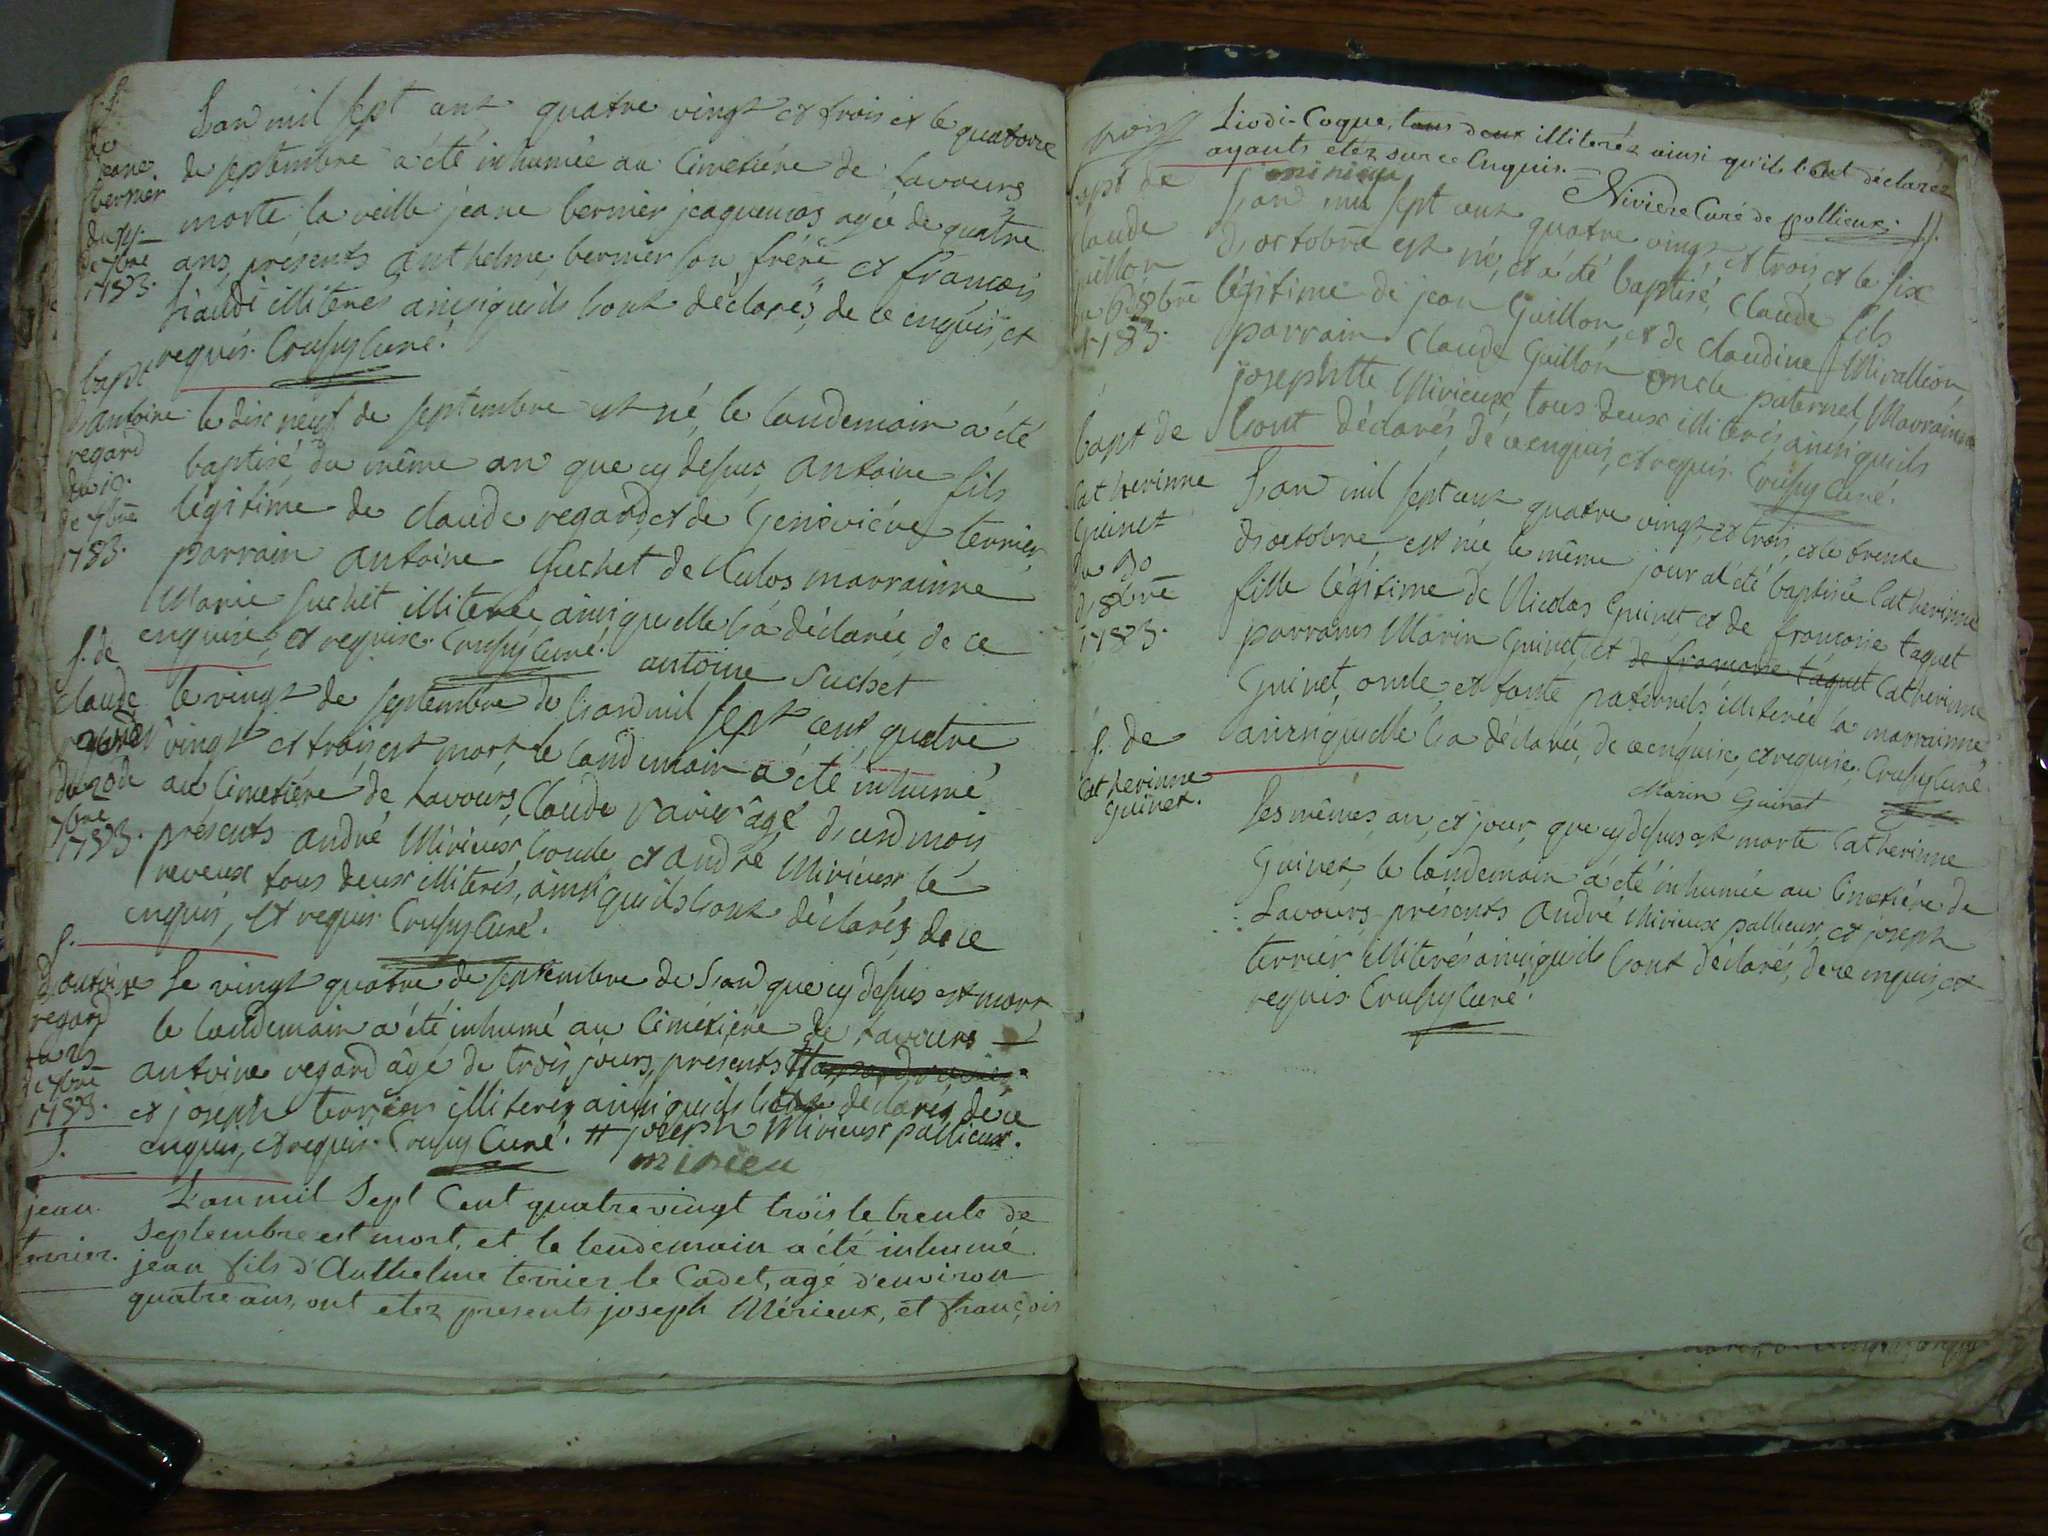 f.
de
jeane
bernier
du 14
de 7bre
1783.
L'an mil sept cent quatre vingt et trois et le quatorze
de septembre a été inhumée au Cimetiére de Lavours
morte la veille jeane bernier jeaquemas agée de quatre
ans, présents anthelme bernier son frére et francois
Liaudi illiteres ainsi qu'ils l'ont déclarés, de ce enquis, et
requis. Crussy Curé.
bapt
d'antoine
regard
du 19.
de 7bre
1783.
le dix neuf de septembre est né, le landemain a été
baptisé du même an que cy dessus, antoine fils
légitime de claude regard, et de Geneviéve terrier,
parrain antoine Suchet de Culos marrainne
Marie Suchet illiterée, ainsi quelle l'a déclarée, de ce
enquise, et requise. Crussy Curé. antoine suchet
f. de
claude
du 20 de
7bre
1783.
le vingt de septembre de l'an mil sept cent quatre
vingt et trois, est mort, le landemain a été inhumé
au Cimetiére de Lavours, Claude ravier âgé d'un mois
présents andré Mirieux, boude et andré Mirieux le
reveux tous deux illiterés, ainsi qu'ils l'ont déclarés de ce
enquis, et requis. Crussy Curé.
f.
d'antoine
regard
du 25
de 7bre
1783.
Le vingt quatre de septembre de l'an que cy dessus est mort
le landemain a été inhumé au Cimétiére de Lavours
antoine regard âgé de trois jours, présents #
et joseph terrier illiterés ainsi qu'ils l'ont déclarés, de ce
enquis, et requis. Crussy Curé. # joseph Mirieux pallieux.
mirieu
f.
jean
terrier.
L'an mil Sept Cent quatre vingt trois le trente de
Septembre est mort, et le lendemain a été inhumé
jean fils d'Anthelme terrier le Cadet, agé d'environ
quatre ans, ont etez presents joseph Mérieux, et françois
Liodi-Coque, tous deux illiterés ainsi qu'ils l'ont déclarés
ayants etez sur ce Enquis. = Niviere Curé de pollieux.
mirieu
bapt de
claude
guillon
du 6 d'8bre
1783.
L'an mil sept cent quatre vingt et trois, et le six
d'octobre est né, et a été baptisé, Claude fils
légitime de jean Guillon, et de claudine Mirallion,
parrain Claude Guillon oncle paternel, Marrainne
josephtte Mirieux, tous deux illiterés, ainsi qu'ils
l'ont déclarés, de ce enquis, et requis. Crussy Curé.
bapt de
Catherinne
Guinet
du 30
d'8bre
1783.
L'an mil sept cent quatre vingt, et trois, et le trente
d'octobre, est née, le même jour a été baptisée Catherinne
fille légitime de Nicolas Guinet et de francoise taquet
parrains Marin Guinet, et de francoise taquet Catherinne
Guinet, oncle, et tante paternels illiterée la marrainne
ainsi quelle l'a déclarée, de ce enquise, et requise. Crussy Curé.
Marin Guinet
f. de
Catherinne
Guinet.
Les mêmes, an, et jour, que cy dessus est morte Catherinne
Guinet, le landemain a été inhumée au Cimetiére de
Lavours présents André Mirieux pallieux, et joseph
terrier illiterés ainsi qu'ils l'ont déclarés, de ce enquis, et
requis Crussy Curé.